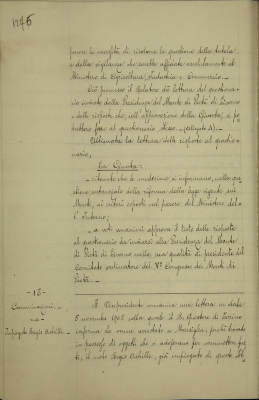 pure la necessità di risolvere la questione della tutela
e della vigilanza che sarebbe affidata esclusivamente al
Ministero di Agricoltura, Industria e Commercio.-
Ciò premesso il Relatore dà lettura del questiona-
rio inviato dalla Presidenza del Monte di Pietà di Livorno
e delle risposte che, coll'approvazione della Giunta, si po-
trebbero fare al questionario stesso - (allegato A) -
Ultimata la lettura delle risposte al questio-
nario,
La Giunta:
- ritenuto che le medesime si informano, nella que-
stione sostanziale della riforma della legge vigente sui
Monti, ai criteri esposti nel parere del Ministero del-
l'Interno;
- a voti unanimi approva il testo delle risposte
al questionario da inviarsi alla Presidenza del Monte
di Pietà di Livorno nella sua qualità di presidente del
Comitato ordinatore del V° Congresso dei Monti di
Pietà. -
- 18 -
Comunicazioni.
Impiegato Regis Achille.
Il Vicepresidente comunica una lettera in data
5 novembre 1905 colla quale il R. Questore di Torino
informa che venne arrestato a Marsiglia, perchè trovato
in possesso di oggetti che si adoperano per commettere fur-
ti, il noto Regis Achille, già impiegato di questo Isti-